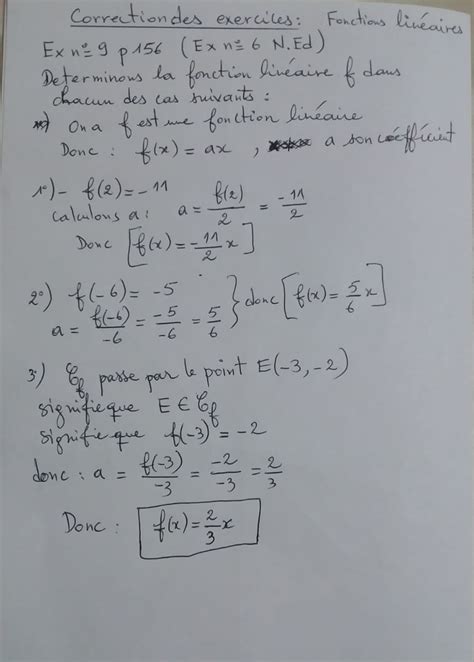 Correction des exercices : Fonctions linéaires
Ex n° 9 p 156 ( Ex n° 6 N.Ed )
Determinons la fonction linéaire f dans
chacun des cas suivants :
On a f est une fonction linéaire
Donc : f(x) = ax , a son coéfficient
1°) - f(2) = -11
calculons a : a = f(2)/2 = -11/2
Donc [ f(x) = -11/2 x ]
2°) f(-6) = -5
a = f(-6)/-6 = -5/-6 = 5/6 } donc [ f(x) = 5/6 x ]
3°) Cf passe par le point E(-3, -2)
signifie que E ∈ Cf
signifie que f(-3) = -2
donc : a = f(-3)/-3 = -2/-3 = 2/3
Donc : f(x) = 2/3 x